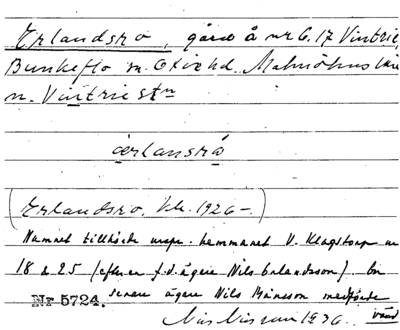 Erlandsro, gård å nr 6, 17 Vintrie,
Bunkeflo sn. Oxie hd. Malmöhus län
n. Vintrie stn
ärlansrå
(Erlandsro. Tele. 1926-.)
Namnet tillhörde urspr. hemmanet V. Klagstorp nr
18 & 25 (efter en f.d. ägare Nils Erlandsson). En
Nr 5724. senare ägare Nils Månsson medförde
Nils Nilsson 1936. vänd